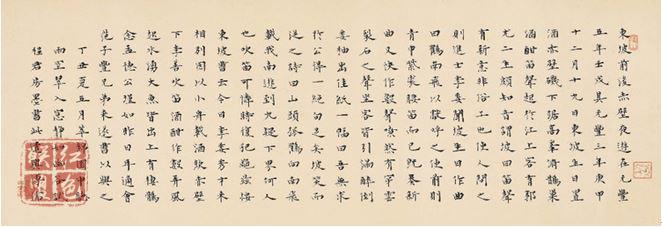 東坡前後赤壁夜遊在元豐
五年壬戌其元豐三年庚申
十二月十九日東坡生日置
酒赤壁磯下踞高峯俯鵲巢
酒酣笛聲起於江上客有郭
尤二生頗知音謂坡曰笛聲
有新意非俗工也使人問之
則進士李委聞坡生日作曲
曰鶴南飛以獻呼之使前則
青巾紫裘腰笛而已既奏新
曲又快作數聲嘹然有穿雲
裂石之聲坐客皆引滿醉倒
委袖出佳紙一幅曰吾無求
於公得一絕句足矣坡笑而
從之詩曰山頭孤鶴向南飛
載我南遊到九疑下界何人
也吹笛可憐時復犯龜茲
東坡曹云今日李委秀才來
相別因以小舟載酒飲赤壁
下李善吹笛酒酣作數弄風
起水湧大魚皆出上有棲鶻
念孟德公瑾如昨日耳適會
范子豐兄弟來遂書以與之
丁丑夏五月
雨室翠入窓靜
程君房墨書此